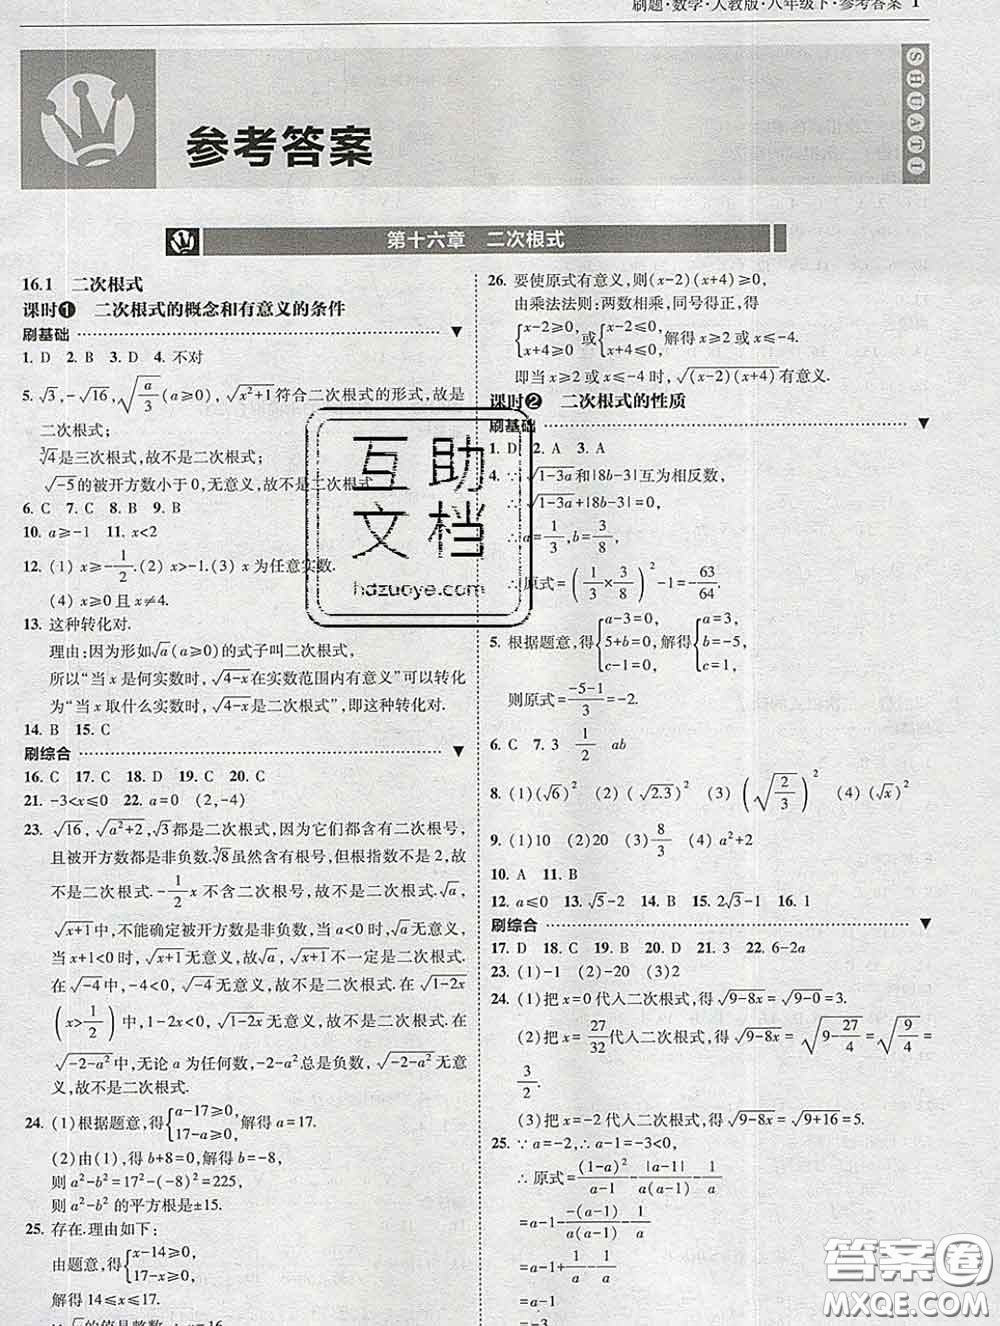 刷题·数学·人教版·八年级下·参考答案 1
SHUATI
参考答案
第十六章 二次根式
16.1 二次根式
课时❶ 二次根式的概念和有意义的条件
刷基础
1. D 2. B 3. D 4. 不对
5. √3,-√16,√(a/3)(a≥0),√(x²+1)符合二次根式的形式,故是
二次根式;
∛4是三次根式,故不是二次根式;
√-5的被开方数小于0,无意义,故不是二次根式
6. C 7. C 8. B 9. B
10. a≥-1 11. x<2
12. (1) x≥-1/2.(2) x>-1.(3) x为任意实数.
(4) x≥0且x≠4.
13. 这种转化对.
理由:因为形如√a(a≥0)的式子叫二次根式,
所以“当x是何实数时,√(4-x)在实数范围内有意义”可以转化
为“当x取什么实数时,√(4-x)是二次根式”,即这种转化对.
14. B 15. C
刷综合
16. C 17. C 18. D 19. C 20. C
21. -3<x≤0 22. a=0 (2,-4)
23. √16,√(a²+2),√3都是二次根式,因为它们都含有二次根号,
且被开方数都是非负数.∛8虽然含有根号,但根指数不是2,故
不是二次根式.-1/2x不含二次根号,不是二次根式.√a,
√(x+1)中,不能确定被开方数是否是非负数,当a<0时,√a无意
义,当x+1<0时,√(x+1)无意义,故√a,√(x+1)不一定是二次根式.
在√-4中,-4<0,√-4无意义,故不是二次根式.在√(1-2x)
(x>1/2)中,1-2x<0,√(1-2x)无意义,故不是二次根式.在
√(-2-a²)中,无论a为任何数,-2-a²总是负数,√(-2-a²)无意
义,故不是二次根式.
24. (1)根据题意,得{a-17≥0, 17-a≥0,解得a=17.
(2)由(1),得b+8=0,解得b=-8,
则a²-b²=17²-(-8)²=225,
则a²-b²的平方根是±15.
25. 存在.理由如下:
由题意,得{x-14≥0, 17-x≥0,
解得14≤x≤17.
26. 要使原式有意义,则(x-2)(x+4)≥0,
由乘法法则:两数相乘,同号得正,得
{x-2≥0, x+4≥0或{x-2≤0, x+4≤0,解得x≥2或x≤-4.
即当x≥2或x≤-4时,√((x-2)(x+4))有意义.
课时❷ 二次根式的性质
刷基础
1. D 2. A 3. A
4. ∵√(1-3a)和|8b-3|互为相反数,
∴√(1-3a)+|8b-3|=0,
∴a=1/3,b=3/8,
∴原式=(1/3×3/8)²-1=-63/64.
5. 根据题意,得{a-3=0, 5+b=0, c-1=0,解得{a=3, b=-5, c=1.
则原式=(-5-1)/3=-2.
6. C 7. 3 1/2 ab
8. (1)(√6)² (2)(√2.3)² (3)(√(2/3))² (4)(√x)²
9. (1)10 (2)20 (3)8/3 (4)a²+2
10. A 11. B
12. a≤0 13. √5-2 14. B 15. 2√3-1 16. 1
刷综合
17. D 18. C 19. B 20. D 21. 3 22. 6-2a
23. (1)-1 (2)-20 (3)2
24. (1)把x=0代入二次根式,得√(9-8x)=√(9-0)=3.
(2)把x=27/32代入二次根式,得√(9-8x)=√(9-27/4)=√(9/4)=
3/2.
(3)把x=-2代入二次根式,得√(9-8x)=√(9+16)=5.
25. ∵a=-2,∴a-1=-3<0,
∴原式=(1-a)²/(a-1)-|a-1|/(a(a-1))-1/a
=a-1-(-(a-1))/(a(a-1))-1/a
=a-1+1/a-1/a
=a-1
=-3.
互助
文档
hdzuoye.com
答案卷
MXQE.COM